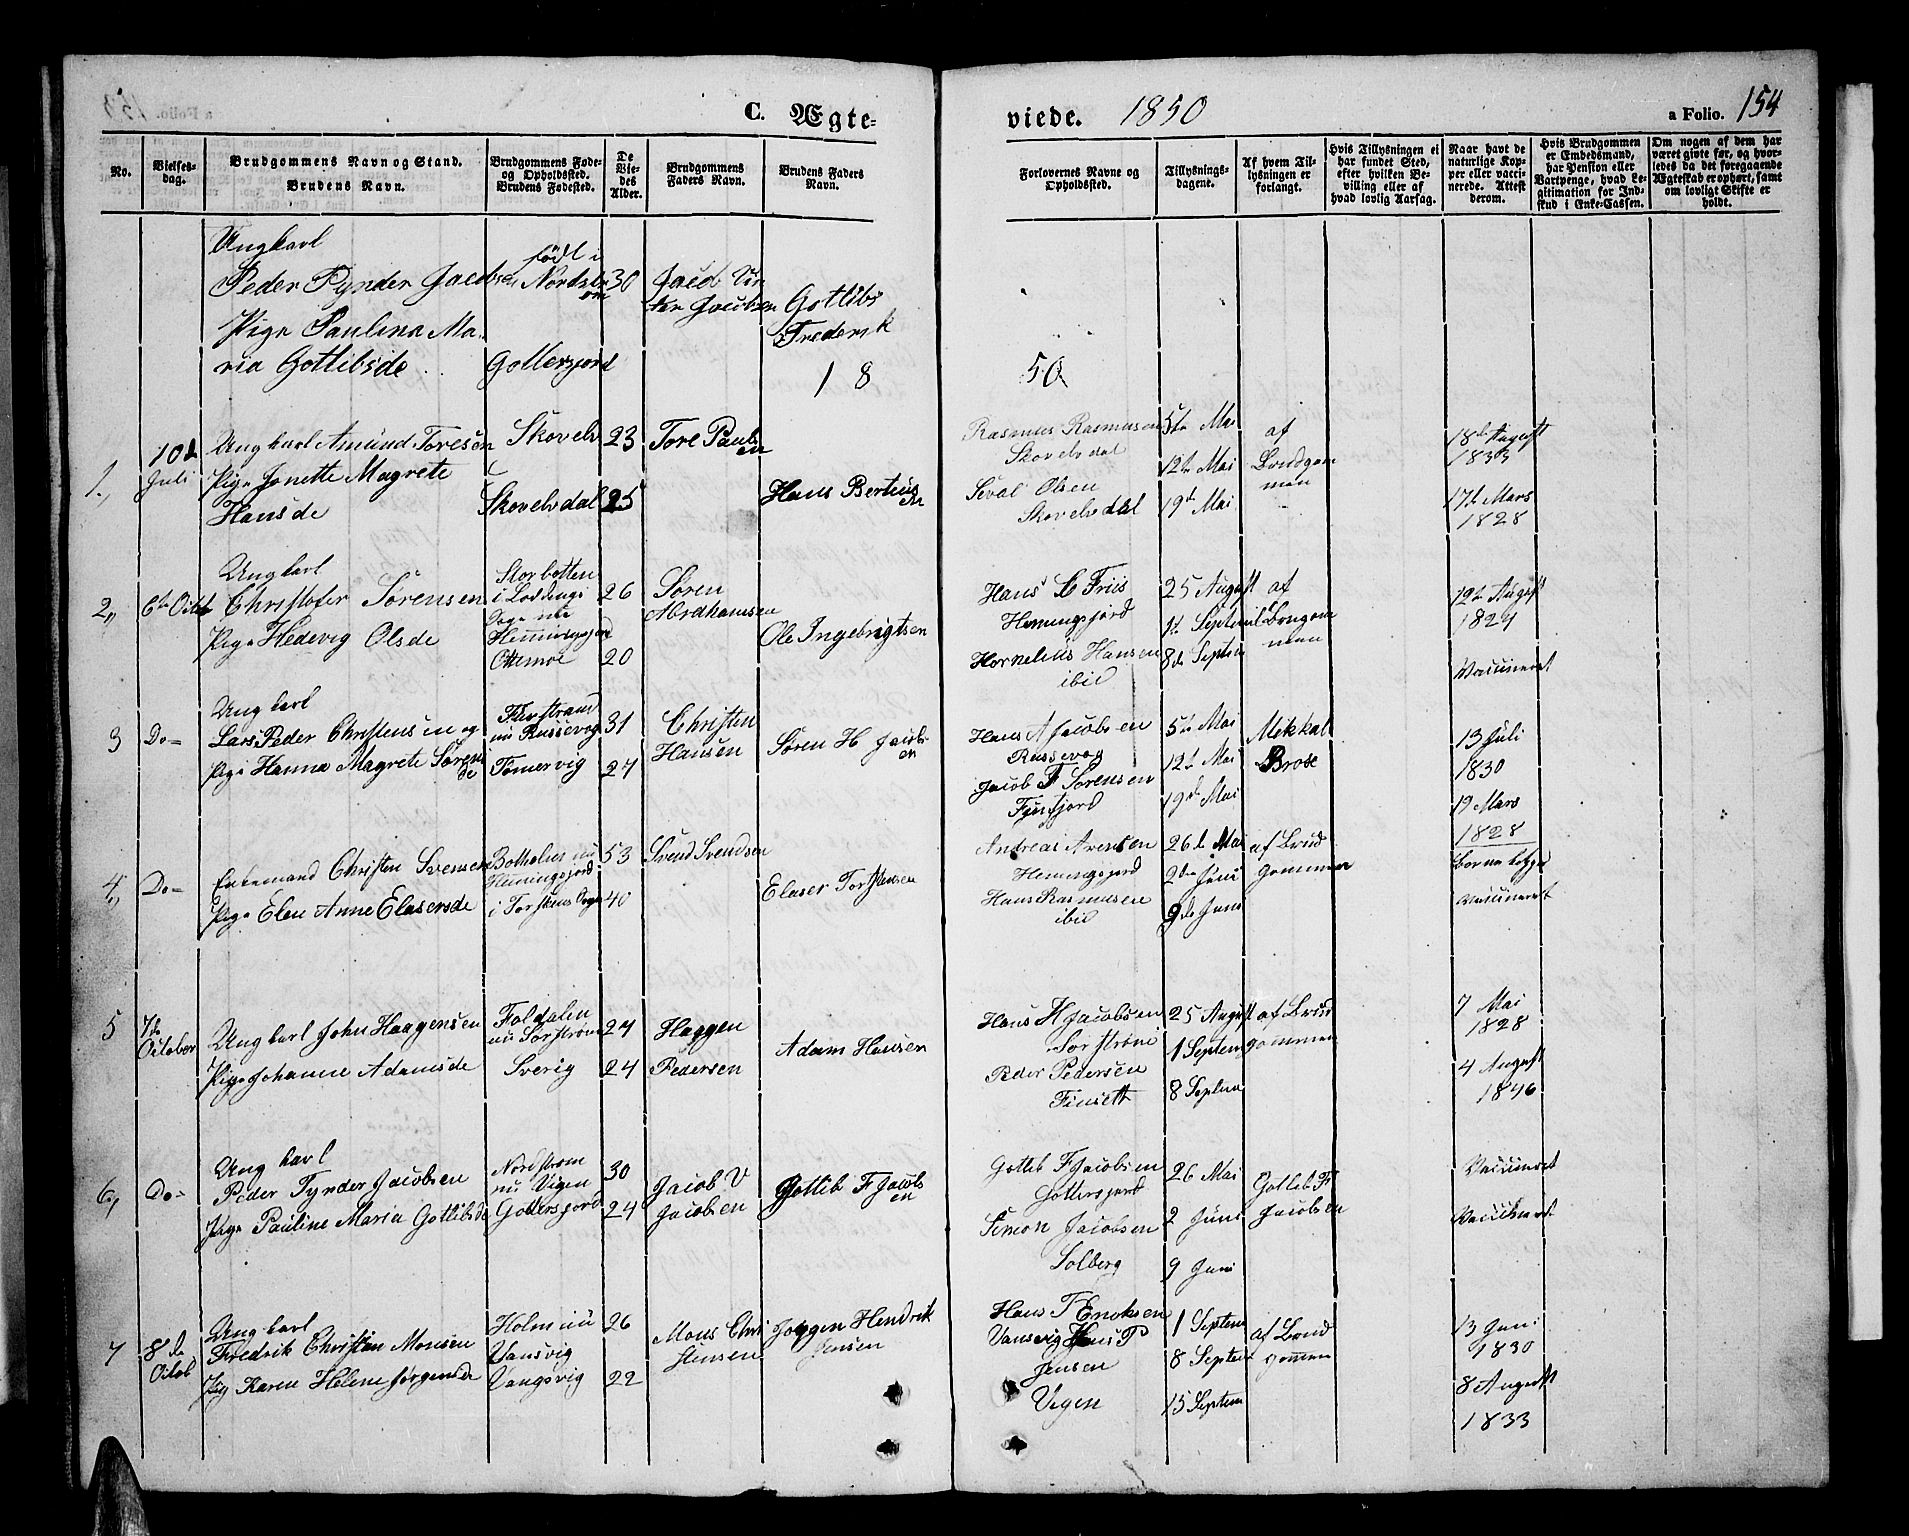 C. Ægte-
viede. 1850
a Folio. 154
No.
Vielses-
dag.
Brudgommens Navn og Stand.
Brudens Navn.
Brudgommens Føde-
og Opholdssted.
Brudens Fødested.
De
Vie-
des
Alder.
Brudgommens
Faders Navn.
Brudens Faders
Navn.
Forlovernes Navne og
Opholdssted.
Tillysnings-
dagene.
Af hvem Til-
lysningen er
forlangt.
Hvis Tillysningen ei
har fundet Sted,
efter hvilken Be-
villing eller af
hvad lovlig Aarsag.
Naar havt de
naturlige Kop-
per eller vacci-
nerede. Attest
derom.
Hvis Brudgommen
er Embedsmand,
har Pension eller
Vartpenge, hvad Le-
gitimation for Ind-
skud i Enke-Cassen.
Om nogen af dem har
været givte før, og hvor-
ledes da det foregaaende
Ægteskab er ophørt, samt
om lovligt Skifte er
holdt.
Ungkarl
Peder Tynder Jacobsen
Pige Paulina Ma-
ria Gottlibsde
født i
Nordstr
øm
Gottersjord
30
Jacob Vin
ter Jacobsen
Gotlibs
Frederik
18 50
1,
10d
Juli
Ungkarl Amund Toresen
Pige Jonette Magrete
Hansde
Skovelv
Skovelvdal
23
25
Tore Pauls
en
Hans Bertius
en
Rasmus Rasmusen
Skovelvdal
Sival Olsen
Skovelvdal
5te Mai
12te Mai
19d Mai
af
Brudgom
men
18de August
1833
17de Mars
1828
2,,
6te Octob
Ungkarl
Christofer Sørensen
Pige Hedevig Olsde
Storbotten
i Lødings
Hemmingsjord
Ottemoe
26
20
Søren
Abrahamsen
Ole Ingebrigtsen
Hans C Friis
Hemingsjord
Hornelius Hansen
ibid
25 August
1te Septem
8de Septem
af
Brugom
men
12te August
1829
Vaccineret
3
Do-
Ungkarl
Lars Peder Christensen og
Pige Hanna Magrete Sørens
de
nu Russevog
Tømervig
31
27
Christen
Hansen
Søren H Jacobs
en
Hans A Jacobsen
Russevog
Jacob F Sørensen
5te Mai
12te Mai
19de Mai
Mekkal
Brose
13 Juli
1830
19 Mars
1828
4,
Do-
Enkemand Christen Svensen
Pige Elen Anne Elasersde
Hemingsjord
i Torskens Sogn
53
40
Svend Svendsen
Elaser Torstensen
Andreas Arensen
Hemingsjord
Hans Rasmusen
ibid
26de Mai
2den Juni
9de Juni
af Brud
gommen
vaccineret
5
7de
October
Ungkarl John Haagensen
Pige Johanne Adamsde
Foldalen
nu Sørstrøm
Svervig
27
24
Haggen
Pedersen
Adam Hansen
Hans H Jacobsen
Sørstrøm
Peder Pedersen
Finsett
25 August
1 Septem
8 Septem
af Brud
gommen
7 Mai
1828
4 August
1846
6,
Do-
Ung karl
Peder Tynder Jacobsen
Pige Pauline Maria Gotlibsde
Nordstrøm
nu Vigen
Gottersjord
30
24
Jacob V
Jacobsen
Gottlib F Jacobs
en
Gottlib F Jacobsen
Gottersjord
Simon Jacobsen
Solberg
26 Mai
2 Juni
9 Juni
Gotleb F
Jacobsen
Vaccineret
Vaccineret
7
8de
Octob
Ungkarl
Fredrik Christian Monsen
Pig Karen Helene Jørgensde
Holm nu
Vansvig
Vangsvig
26
22
Mons Chri
stensen
Jørgen Hendrik
Jensen
Hans T Enoksen
Vansvig Hans P
Jensen
Vigen
1 Septem
8 Septem
15 Septem
af Brud
gommen
13 Juni
1830
8 August
1833